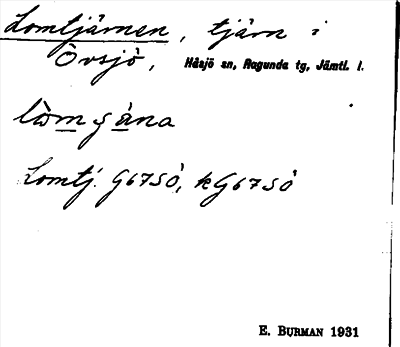 Lomtjärnen, tjärn i
Övsjö, Håsjö sn, Ragunda tg, Jämtl. l.
Lomtj. G67SÖ, kG67SÖ
E. BURMAN 1931